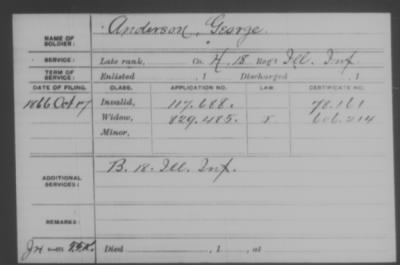 NAME OF SOLDIER: Anderson, George
SERVICE: Late rank, Co. H, 18 Reg't Ill. Inf.
TERM OF SERVICE: Enlisted , 1 Discharged , 1
DATE OF FILING. CLASS. APPLICATION NO. LAW. CERTIFICATE NO.
1866 Oct 17 Invalid, 117.688. 78.161
Widow, 829.485. 606.214
Minor,
ADDITIONAL SERVICES: B. 18. Ill. Inf.
REMARKS:
Died , 1 , at